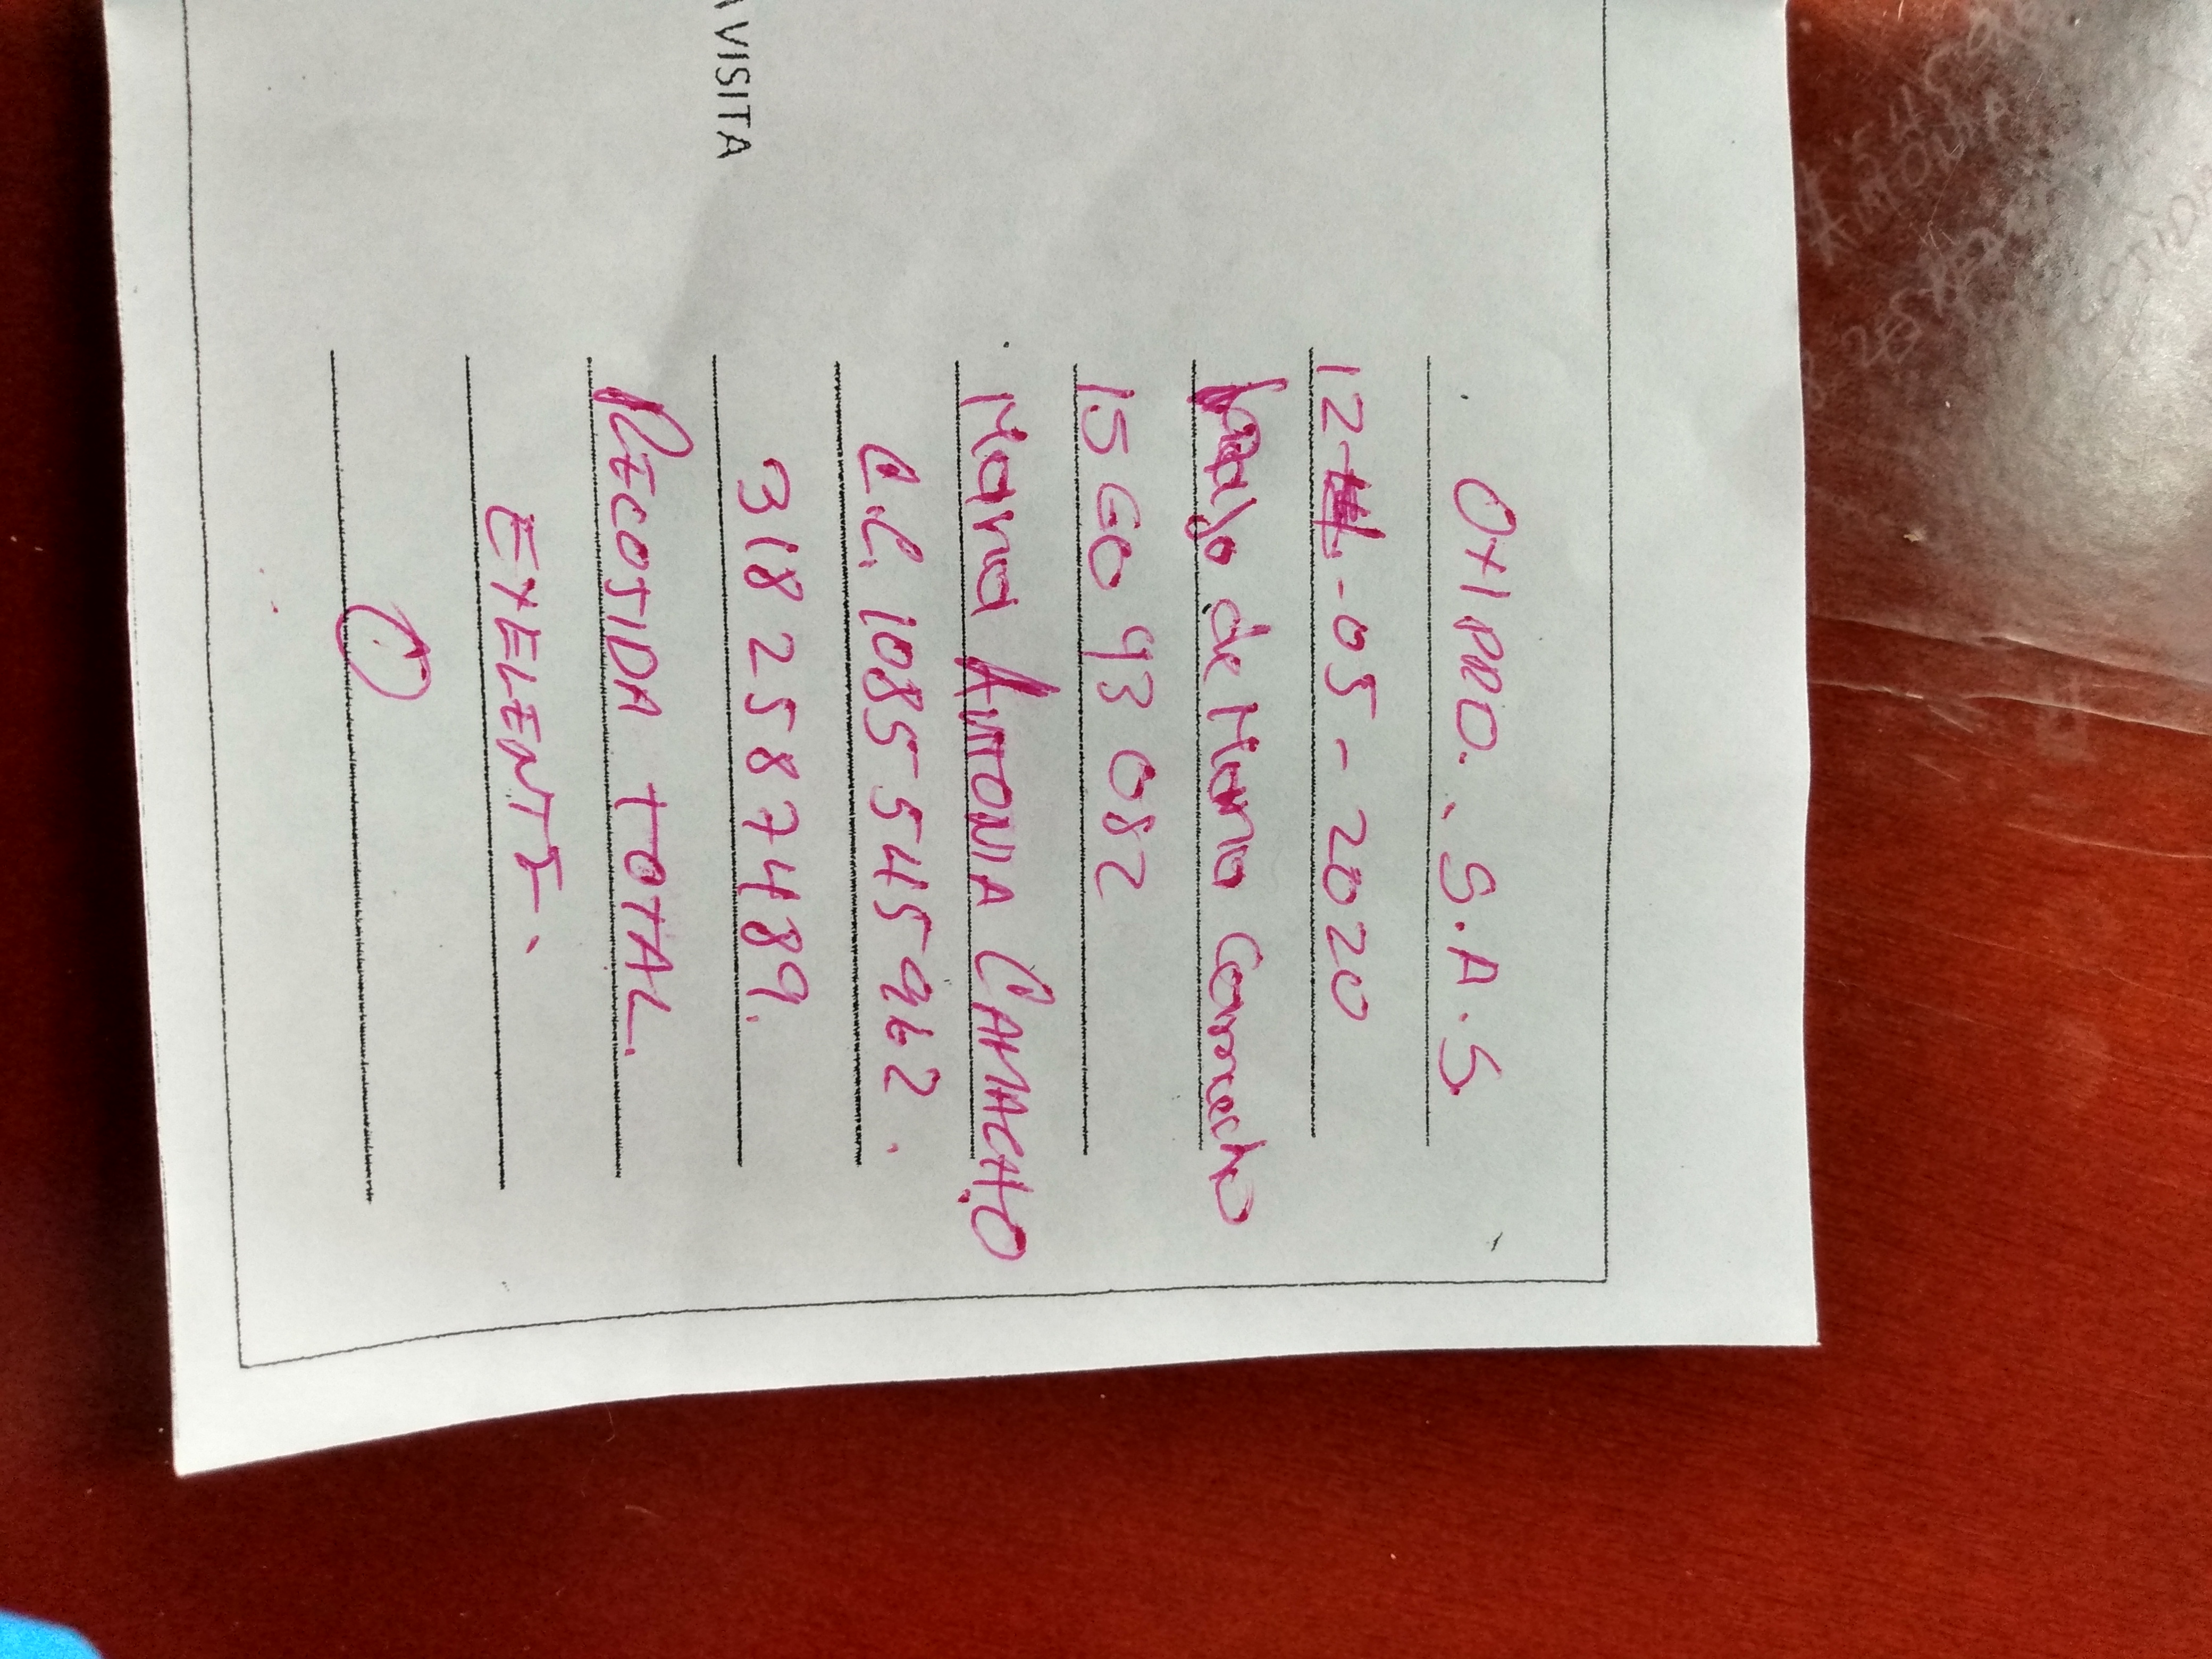 OXIPRO. S.A.S
12-05-2020
de Maria Camacho
15 GO 93 082
Maria ANTONIA CAMACHO
C.C. 1085545962.
318 258 7489.
RECOJIDA TOTAL.
VISITA
EXELENTE.